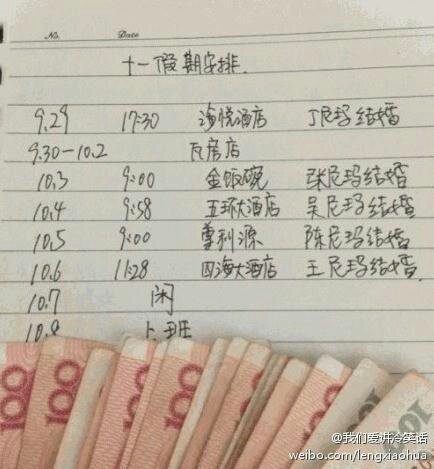 No. Date
十一假期安排.
9.29 17:30 海悦酒店 丁尼玛结婚
9.30-10.2 瓦房店
10.3 9:00 金饭碗 张尼玛结婚
10.4 9:58 五环大酒店 吴尼玛结婚
10.5 9:00 尊利源 陈尼玛结婚
10.6 11:28 四海大酒店 王尼玛结婚.
10.7 闲
10.8 上班
100 100 100
@我们爱讲冷笑话
weibo.com/lengxiaohua